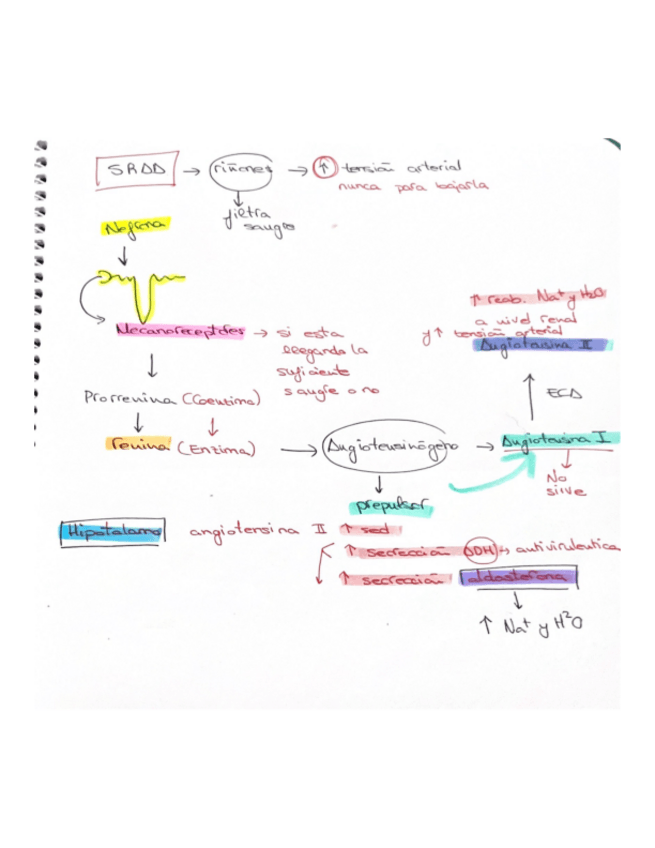 SRAA → riñones → ↑ tensión arterial
nunca para bajarla
filtra
sangre
Nefrona
↑ reab. Na+ y H2O
a nivel renal
y ↑ tensión arterial
Angiotensina II
Mecanoreceptores → si esta
llegando la
suficiente
sangre o no
Prorrenina (Coenzima)
ECA
renina (Enzima) → Angiotensinógeno → Angiotensina I
No
sirve
prepulsor
Hipotalamo angiotensina II ↑ sed
↑ secrección ADH → antiviruleutica
↑ secrección aldosterona
↑ Na+ y H2O